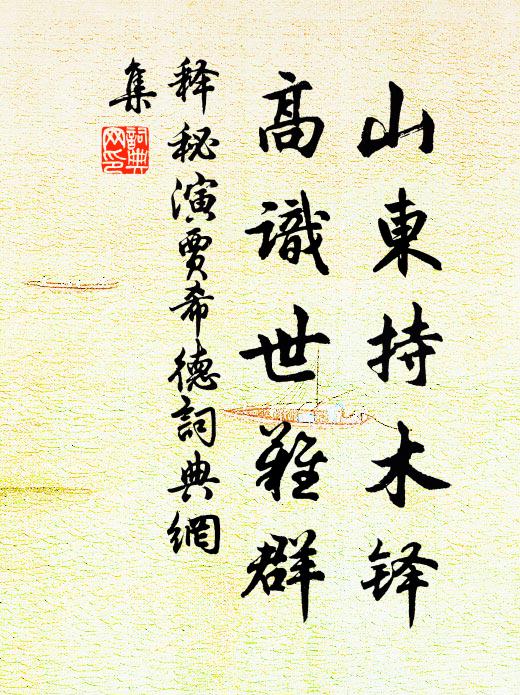 山東持木铎
高識世難群
释秘演賈希德詞典網
集
詞典
网印